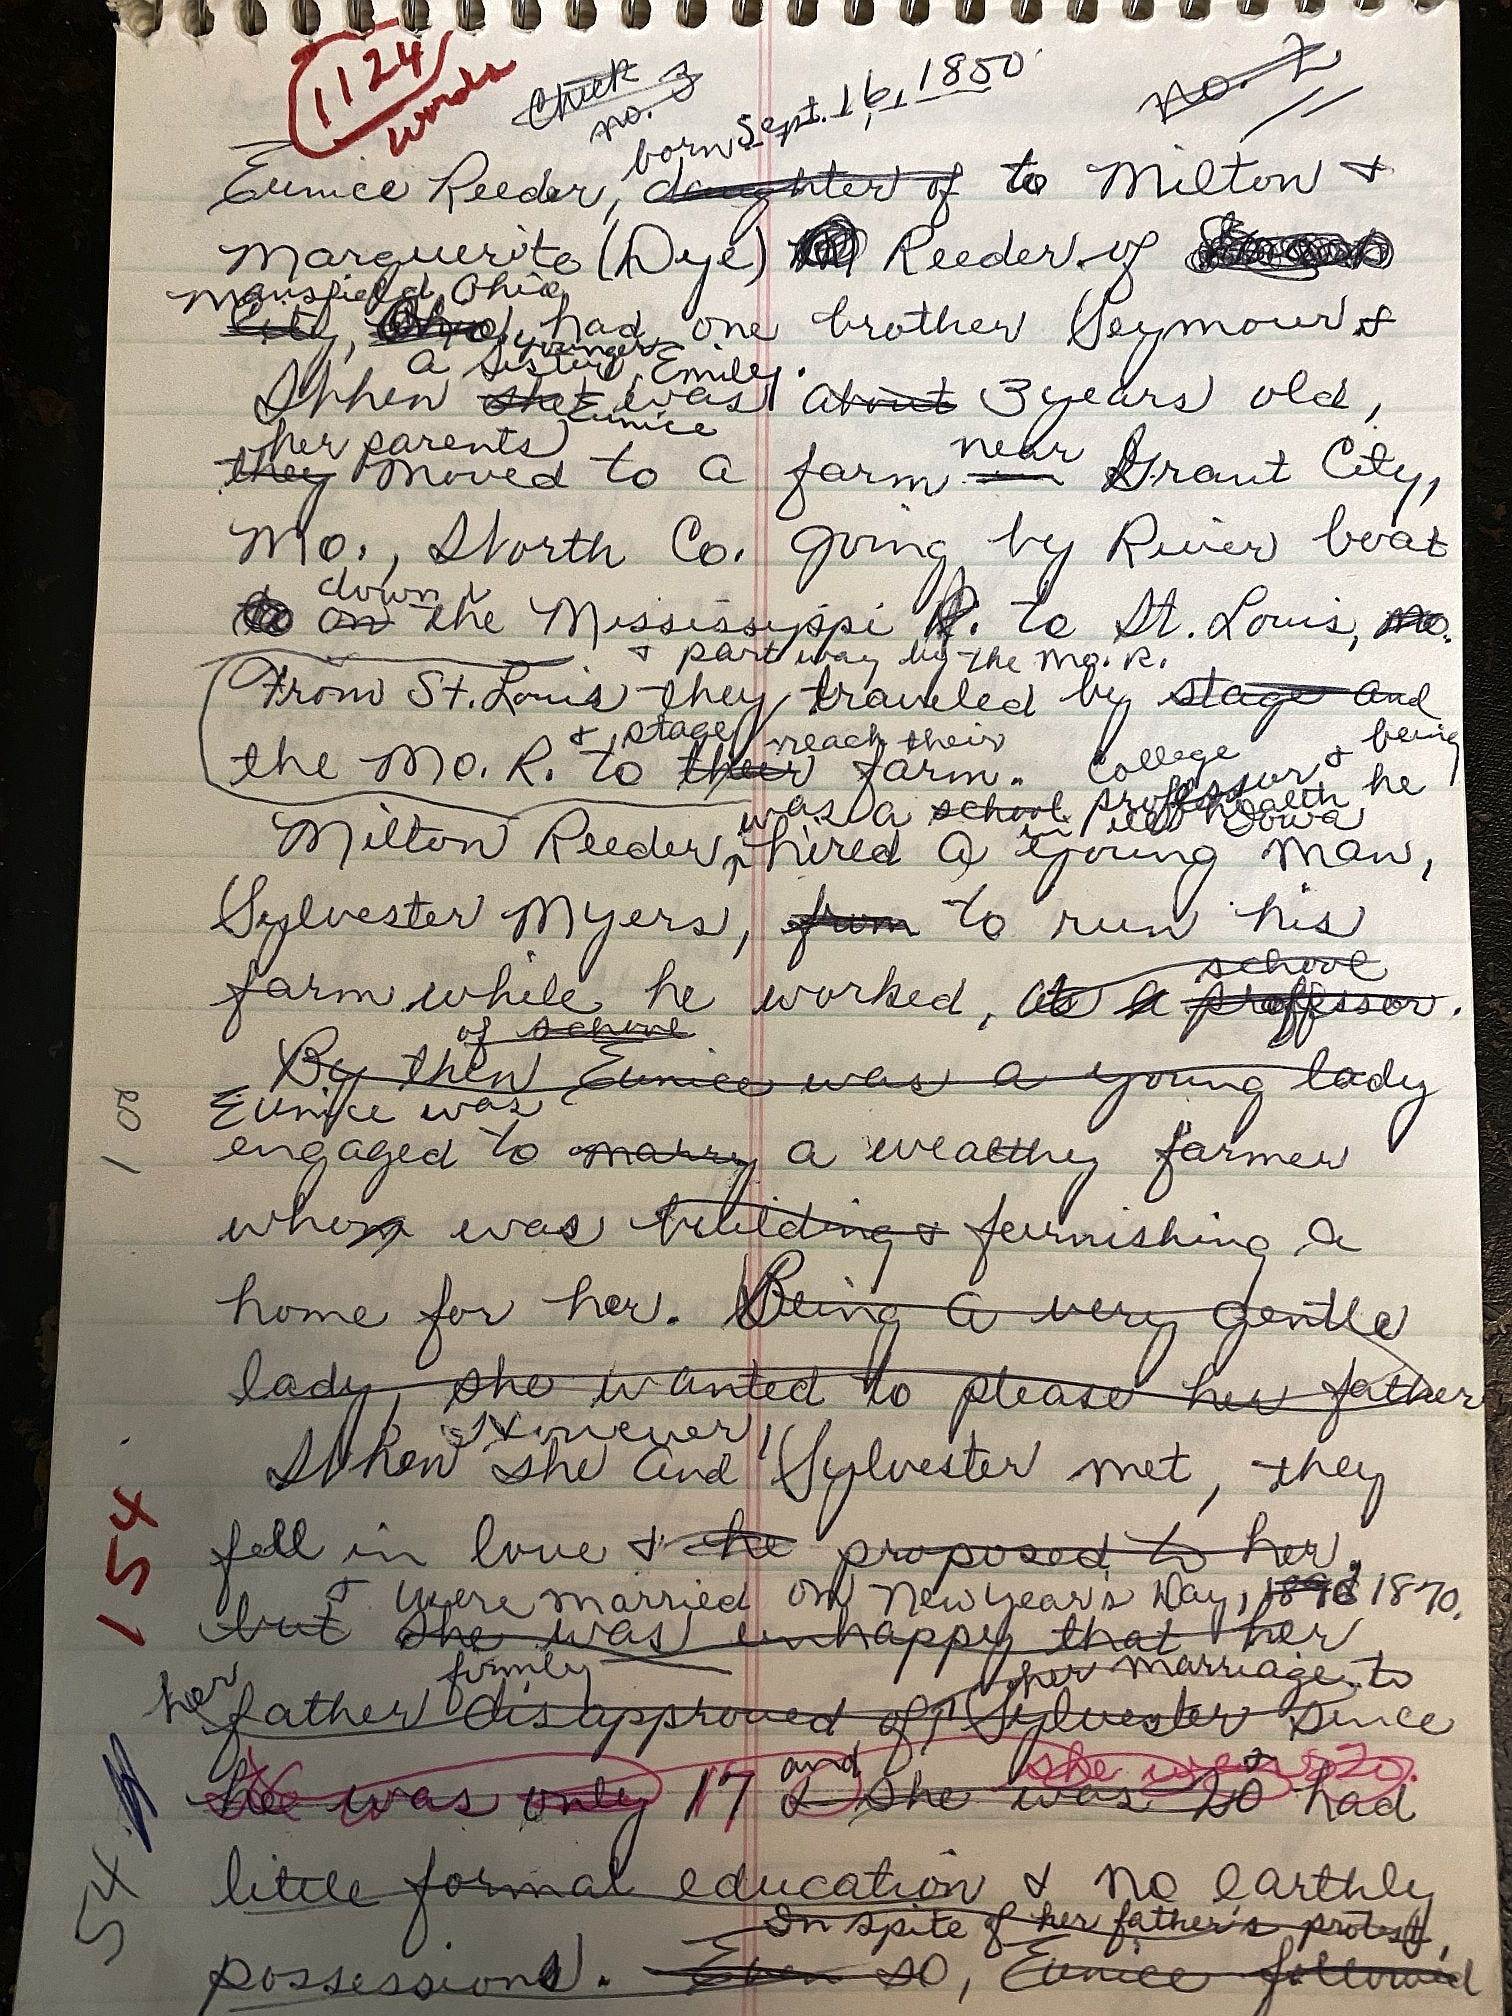 1124
words
Check
no. 3
no. 2
born Sept. 16, 1850
Eunice Reeder, daughter of to Milton &
Marguerite (Dye) Reeder of
Mansfield, Ohio
City, Ohio, had one brother Seymour &
a younger sister, Emily.
When she was about 3 years old,
Eunice
her parents near
they moved to a farm in Grant City,
Mo., Worth Co. going by River boat
down
on the Mississippi R. to St. Louis, Mo.
& part way by the Mo. R.
From St. Louis they traveled by stage and
& stage reach their
the Mo. R. to their farm.
was a school college professor & being
in ill health he
Iowa
Milton Reeder, hired a young man,
Sylvester Myers, from to run his
farm while he worked, as a professor.
school
of school
By then Eunice was a young lady
Eunice was
engaged to marry a wealthy farmer
whom was building & furnishing a
home for her. Being a very gentle
lady, she wanted to please her father
However,
When she and Sylvester met, they
fell in love & he proposed to her.
& were married on New Year's Day, 1870.
but she was unhappy that her
firmly her marriage to
her father disapproved of Sylvester since
and she was 20.
he was only 17 & she was 20 & had
little formal education & no earthly
In spite of her father's protest,
possessions. Even so, Eunice followed
20
1
154
54